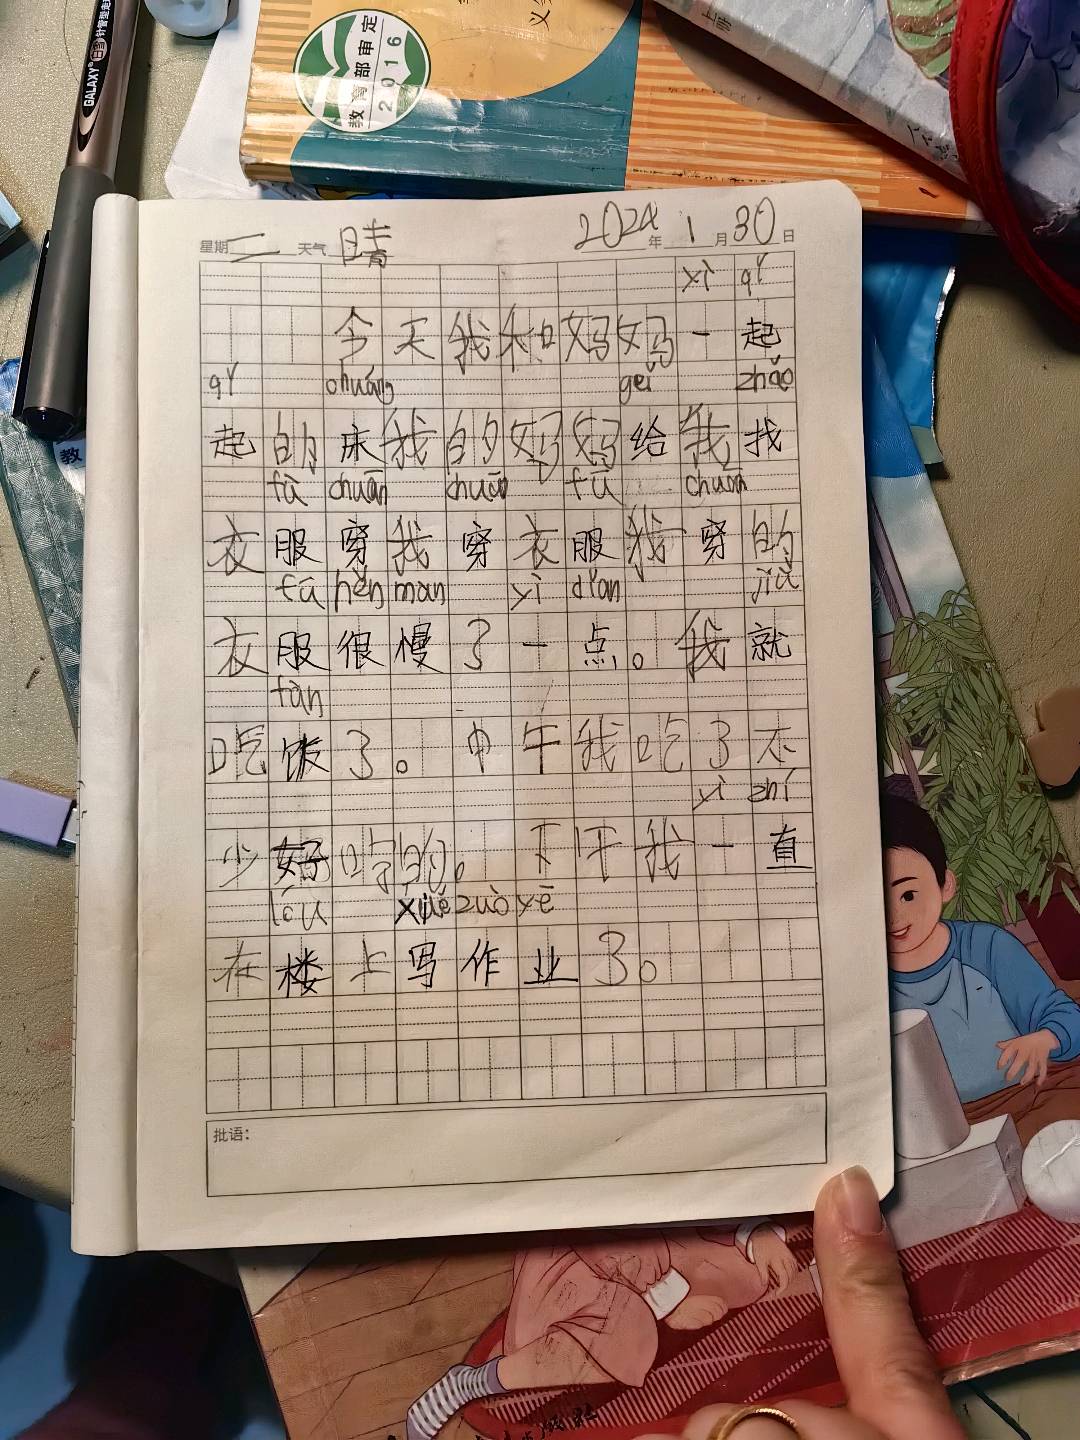 GALAXY® 白雪 针管型走珠
教育部审定
2016
义
上册
教
星期 二 天气 晴 2024 年 1 月 30 日
yì qǐ
今天我和妈妈一起
qǐ chuáng gěi zhǎo
起的床我的妈妈给我找
fú chuān chuān fú chuān
衣服穿我穿衣服我穿的
fú hěn màn yì diǎn jiù
衣服很慢了一点。我就
fàn
吃饭了。中午我吃了不
yì zhí
少好吃的。下午我一直
lóu xiě zuò yè
在楼上写作业了。
批语: